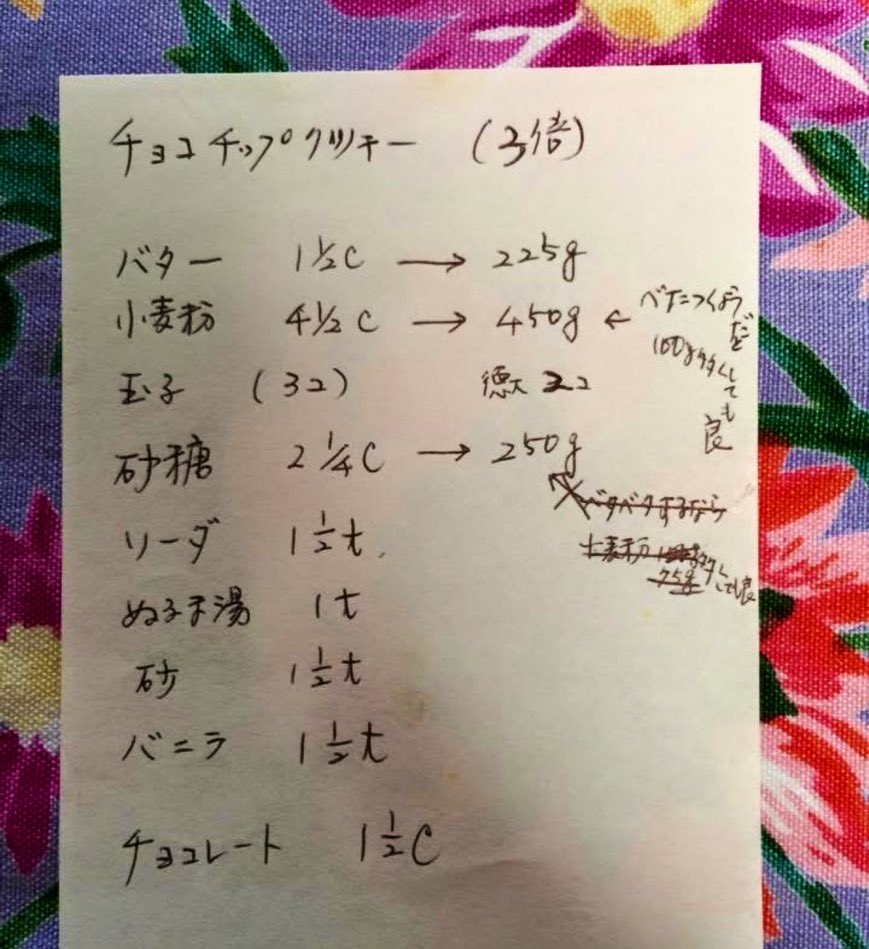 チョコチップクッキー (3倍)
バター 1½C → 225g
小麦粉 4½C → 450g ← ベタつくようだ
100g多くしても良
玉子 (3コ) 徳大 2コ
砂糖 2¼C → 250g
ベタベタするなら
小麦粉
75g多くしても良
ソーダ 1½t
ぬるま湯 1t
砂 1½t
バニラ 1½t
チョコレート 1½C